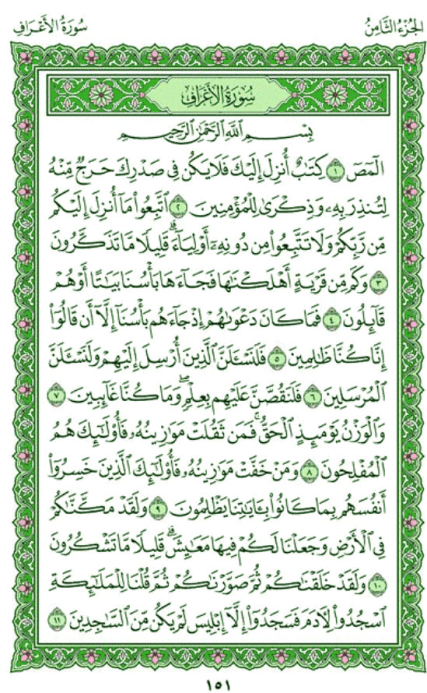 سُورَةُ الأَعۡرَافِ
الجُزۡءُ الثَّامِنُ
سُورَةُ الأَعۡرَافِ
بِسۡمِ ٱللَّهِ ٱلرَّحۡمَٰنِ ٱلرَّحِيمِ
الٓمٓصٓ ١ كِتَٰبٌ أُنزِلَ إِلَيۡكَ فَلَا يَكُن فِي صَدۡرِكَ حَرَجٞ مِّنۡهُ
لِتُنذِرَ بِهِۦ وَذِكۡرَىٰ لِلۡمُؤۡمِنِينَ ٢ ٱتَّبِعُواْ مَآ أُنزِلَ إِلَيۡكُم
مِّن رَّبِّكُمۡ وَلَا تَتَّبِعُواْ مِن دُونِهِۦٓ أَوۡلِيَآءَۗ قَلِيلٗا مَّا تَذَكَّرُونَ
٣ وَكَم مِّن قَرۡيَةٍ أَهۡلَكۡنَٰهَا فَجَآءَهَا بَأۡسُنَا بَيَٰتًا أَوۡ هُمۡ
قَآئِلُونَ ٤ فَمَا كَانَ دَعۡوَىٰهُمۡ إِذۡ جَآءَهُم بَأۡسُنَآ إِلَّآ أَن قَالُوٓاْ
إِنَّا كُنَّا ظَٰلِمِينَ ٥ فَلَنَسۡـَٔلَنَّ ٱلَّذِينَ أُرۡسِلَ إِلَيۡهِمۡ وَلَنَسۡـَٔلَنَّ
ٱلۡمُرۡسَلِينَ ٦ فَلَنَقُصَّنَّ عَلَيۡهِم بِعِلۡمٖۖ وَمَا كُنَّا غَآئِبِينَ ٧
وَٱلۡوَزۡنُ يَوۡمَئِذٍ ٱلۡحَقُّۚ فَمَن ثَقُلَتۡ مَوَٰزِينُهُۥ فَأُوْلَٰٓئِكَ هُمُ
ٱلۡمُفۡلِحُونَ ٨ وَمَنۡ خَفَّتۡ مَوَٰزِينُهُۥ فَأُوْلَٰٓئِكَ ٱلَّذِينَ خَسِرُوٓاْ
أَنفُسَهُم بِمَا كَانُواْ بِـَٔايَٰتِنَا يَظۡلِمُونَ ٩ وَلَقَدۡ مَكَّنَّٰكُمۡ
فِي ٱلۡأَرۡضِ وَجَعَلۡنَا لَكُمۡ فِيهَا مَعَٰيِشَۗ قَلِيلٗا مَّا تَشۡكُرُونَ
١٠ وَلَقَدۡ خَلَقۡنَٰكُمۡ ثُمَّ صَوَّرۡنَٰكُمۡ ثُمَّ قُلۡنَا لِلۡمَلَٰٓئِكَةِ
ٱسۡجُدُواْ لِأٓدَمَ فَسَجَدُوٓاْ إِلَّآ إِبۡلِيسَ لَمۡ يَكُن مِّنَ ٱلسَّٰجِدِينَ ١١
١٥١